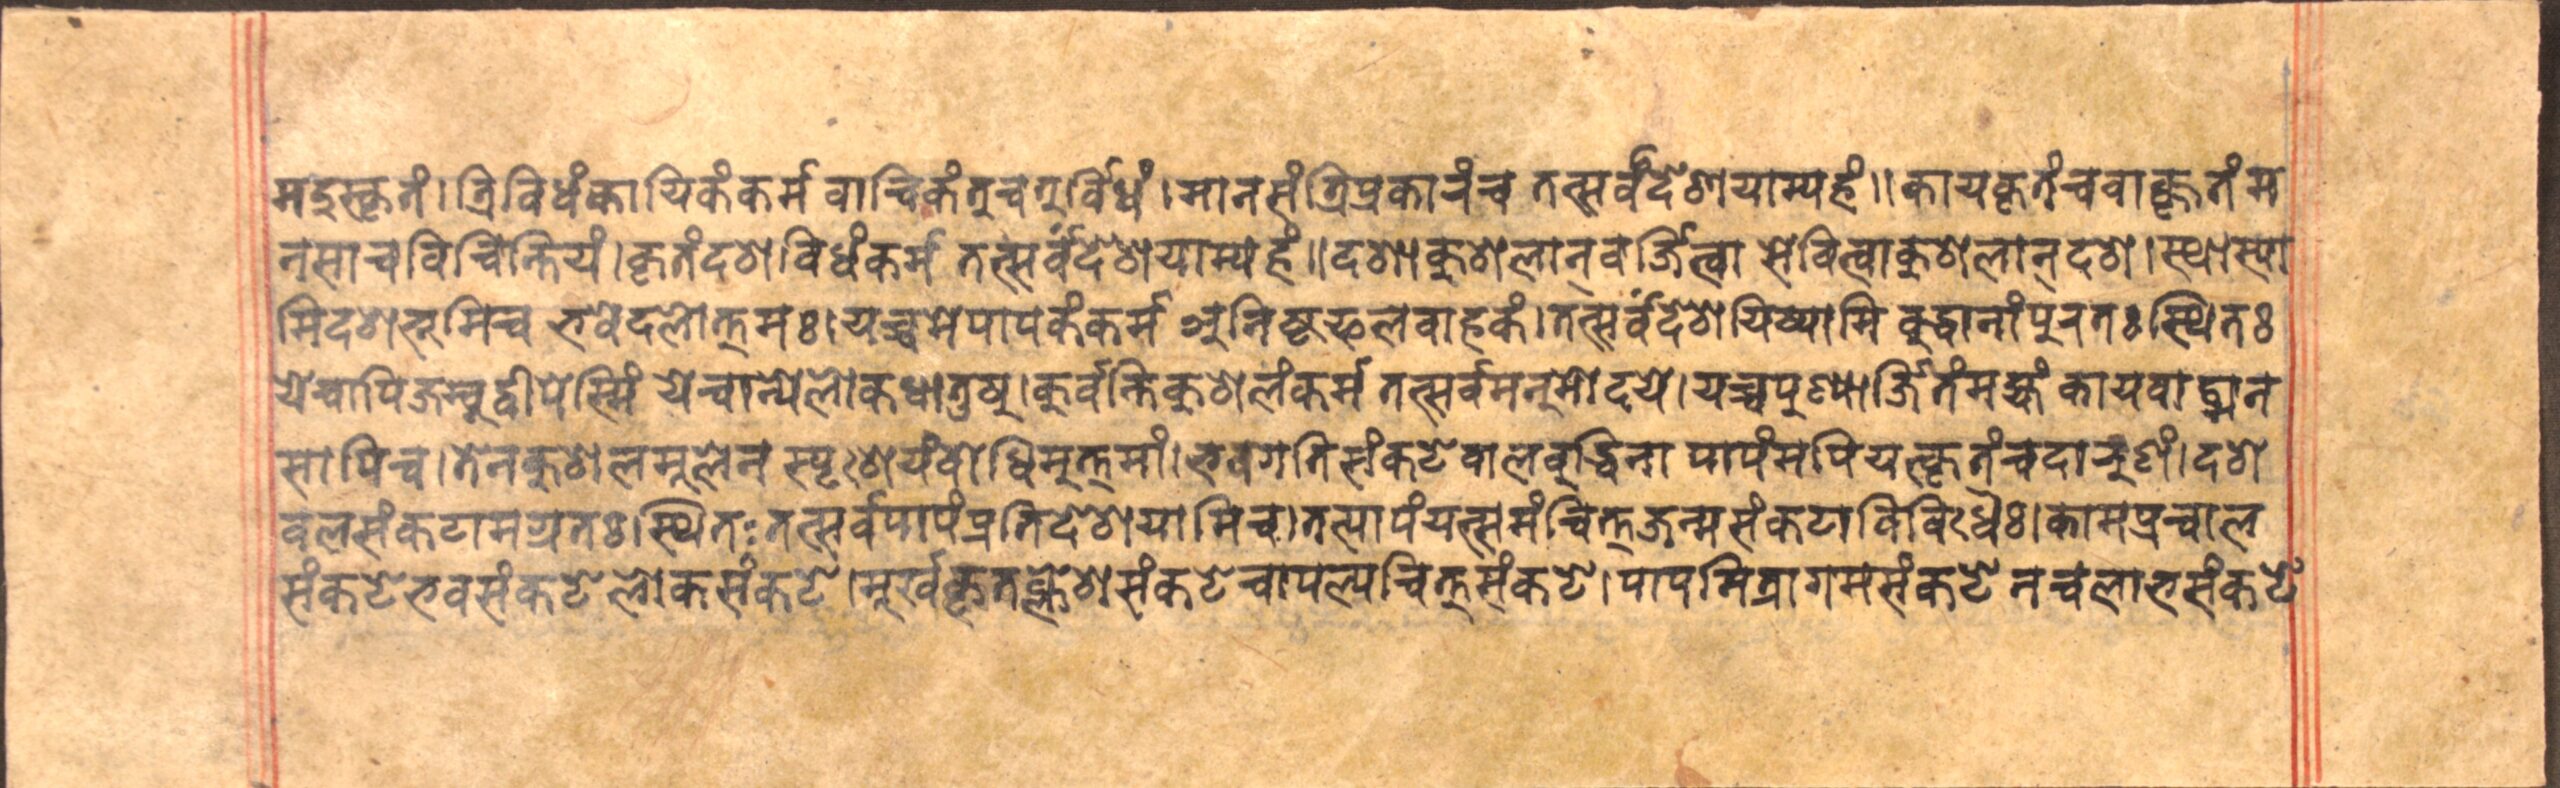 मदुस्कृतं। त्रिविधंकायिकंकर्म वाचिकंतुचतुर्विधं। मानसंत्रिप्रकारंच तत्सर्वंदेशयाम्यहं॥ कायकृतंचवाक्कृतंम
नसाचविचिन्तियं। कृतंदशविधंकर्म तत्सर्वंदेशयाम्यहं॥ दशाकुशलान्वर्जित्वा सेवित्वाकुशलान्दश। स्थास्या
मिदशभूमिच भवेदलोत्तमः। यच्चमेपापकंकर्म अनिष्टफलवाहकं। तत्सर्वंदेशयिष्यामि बुद्धानांपुरतःस्थितः
येचापिजम्बुद्वीपेस्मिं येचान्येलोकधातुषु। कुर्वन्तिकुशलंकर्म तत्सर्वमनुमोदये। यच्चपुण्यार्जितंमह्यं कायवाङ्मन
सापिच। तेनकुशलमूलेन स्पृःशयंबोधिमुत्तमां। भवगतिसंकटेबालबुद्धिना पापंमपियत्कृतंचदारुणं। दश
बलसंकटामग्रतः। स्थितः तत्सर्वपापंप्रतिदेशयामिच। तत्पापंयत्समंचित्तजन्मसंकटाविविःधैः। कामप्रचाल
संकटेभवसंकटेलोकसंकटे। मूर्खकृतक्लेशसंकटेचापल्पचित्तसंकटे। पापमित्रागमसंकटे नचलाभसंकटे